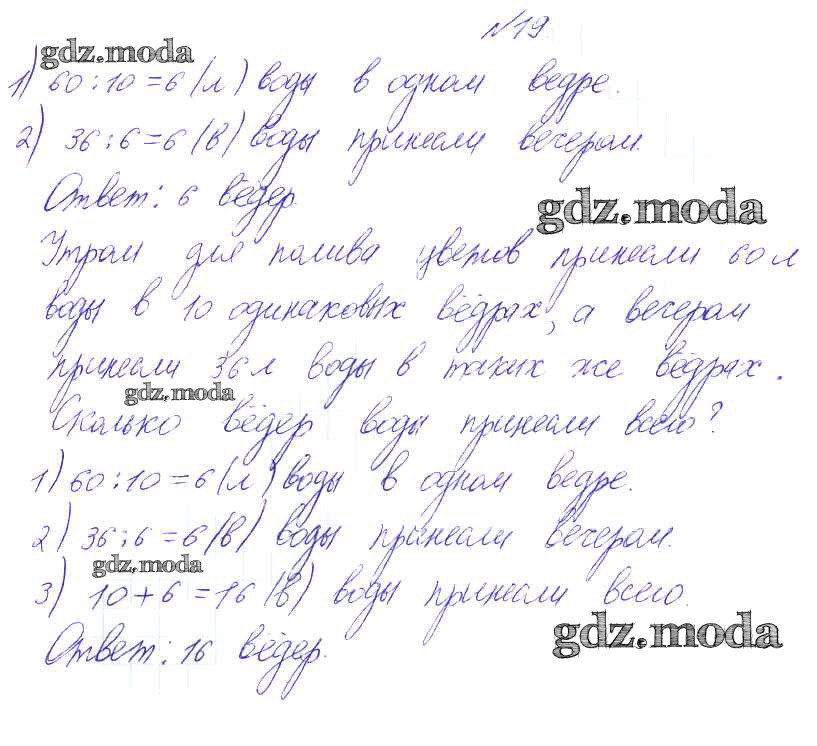 №19
gdz.moda
1) 60:10=6 (л) воды в одном ведре.
2) 36:6=6 (в) воды принесли вечером.
Ответ: 6 вёдер.
gdz.moda
Утром для полива цветов принесли 60 л
воды в 10 одинаковых вёдрах, а вечером
принесли 36 л воды в таких же вёдрах.
gdz.moda
Сколько вёдер воды принесли всего?
1) 60:10=6 (л) воды в одном ведре.
2) 36:6=6 (в) воды принесли вечером.
gdz.moda
3) 10+6=16 (в) воды принесли всего.
gdz.moda
Ответ: 16 вёдер.